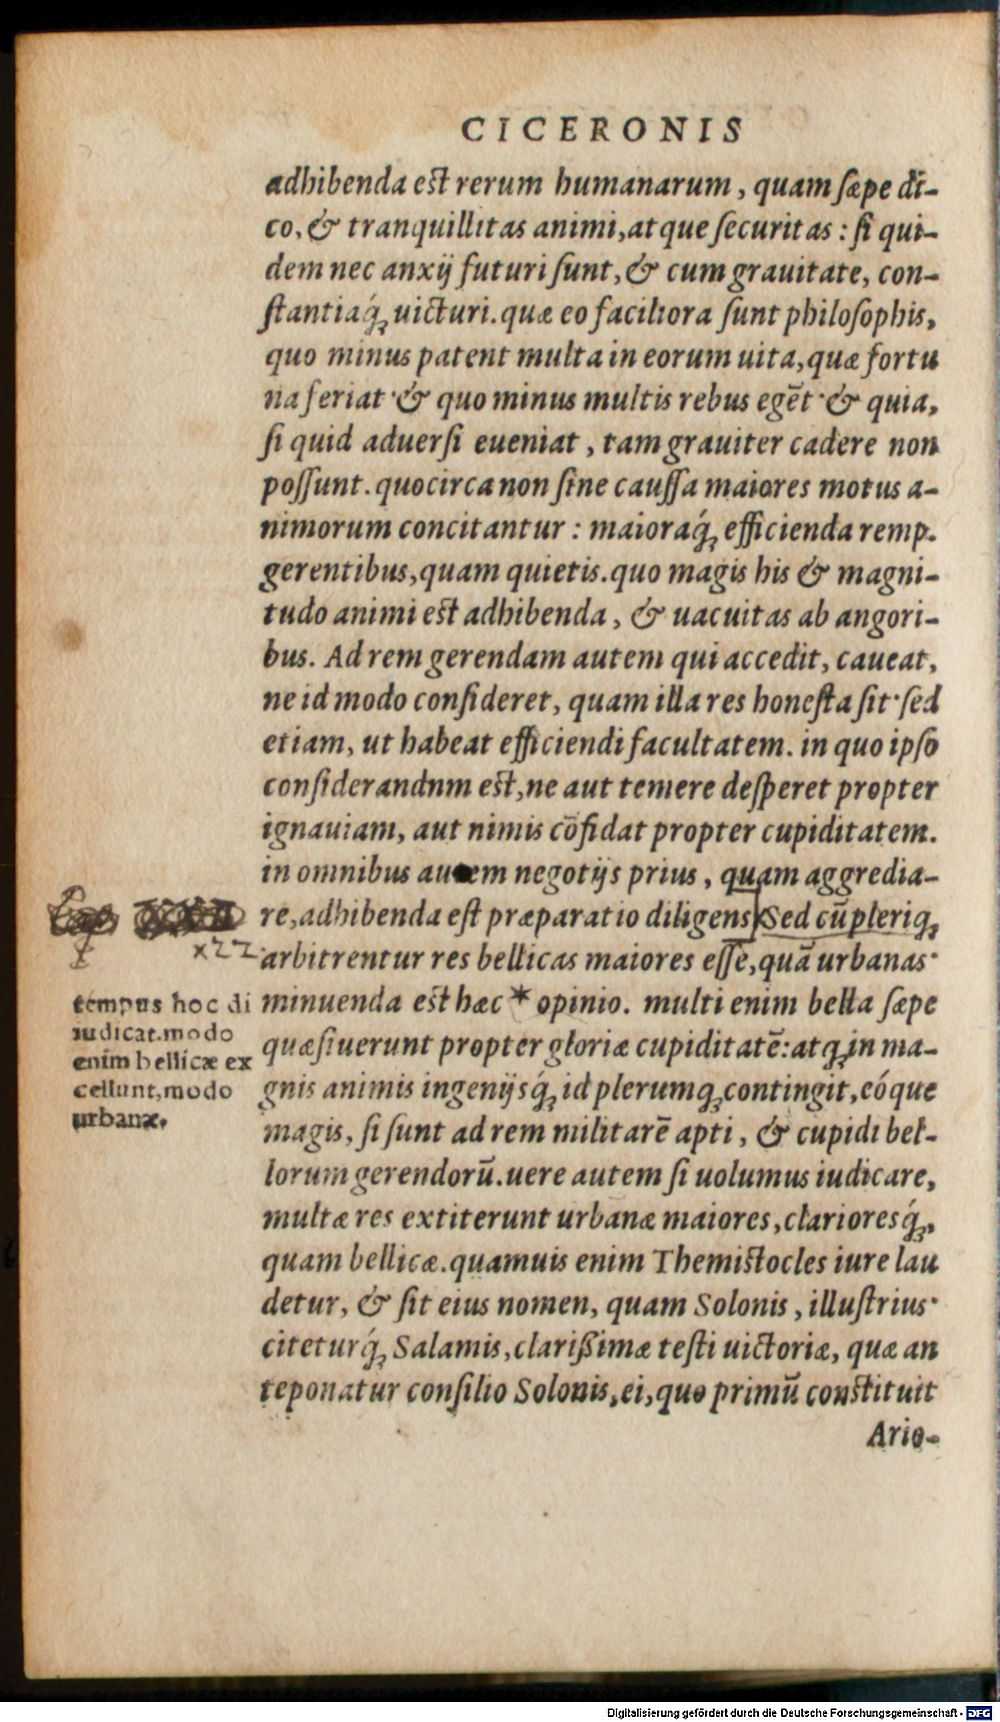 CICERONIS
adhibenda est rerum humanarum, quam sæpe di-
co, & tranquillitas animi, atque securitas: si qui-
dem nec anxij futuri sunt, & cum grauitate, con-
stantiaq́; uicturi. quæ eo faciliora sunt philosophis,
quo minus patent multa in eorum uita, quæ fortu
na feriat· & quo minus multis rebus egẽt· & quia,
si quid aduersi eueniat, tam grauiter cadere non
possunt. quocirca non sine caussa maiores motus a-
nimorum concitantur: maioraq́; efficienda remp.
gerentibus, quam quietis. quo magis his & magni-
tudo animi est adhibenda, & uacuitas ab angori-
bus. Ad rem gerendam autem qui accedit, caueat,
ne id modo consideret, quam illa res honesta sit· sed
etiam, ut habeat efficiendi facultatem. in quo ipso
considerandnm est, ne aut temere desperet propter
ignauiam, aut nimis cõfidat propter cupiditatem.
in omnibus autem negotijs prius, quam aggredia-
re, adhibenda est præparatio diligens. Sed cũ pleriq;
arbitrentur res bellicas maiores esse, quã urbanas·
minuenda est hæc * opinio. multi enim bella sæpe
quæsiuerunt propter gloriæ cupiditatẽ: atq; in ma-
gnis animis ingenijsq́; id plerumq; contingit, eóque
magis, si sunt ad rem militarẽ apti, & cupidi bel-
lorum gerendorũ. uere autem si uolumus iudicare,
multæ res extiterunt urbanæ maiores, clarioresq́;,
quam bellicæ. quamuis enim Themistocles iure lau
detur, & sit eius nomen, quam Solonis, illustrius·
citeturq́; Salamis, clarißimæ testi uictoriæ, quæ an
teponatur consilio Solonis, ei, quo primũ constituit
Ario-
x22
tempus hoc di
iudicat. modo
enim bellicæ ex
cellunt, modo
urbanæ.
Digitalisierung gefördert durch die Deutsche Forschungsgemeinschaft - DFG